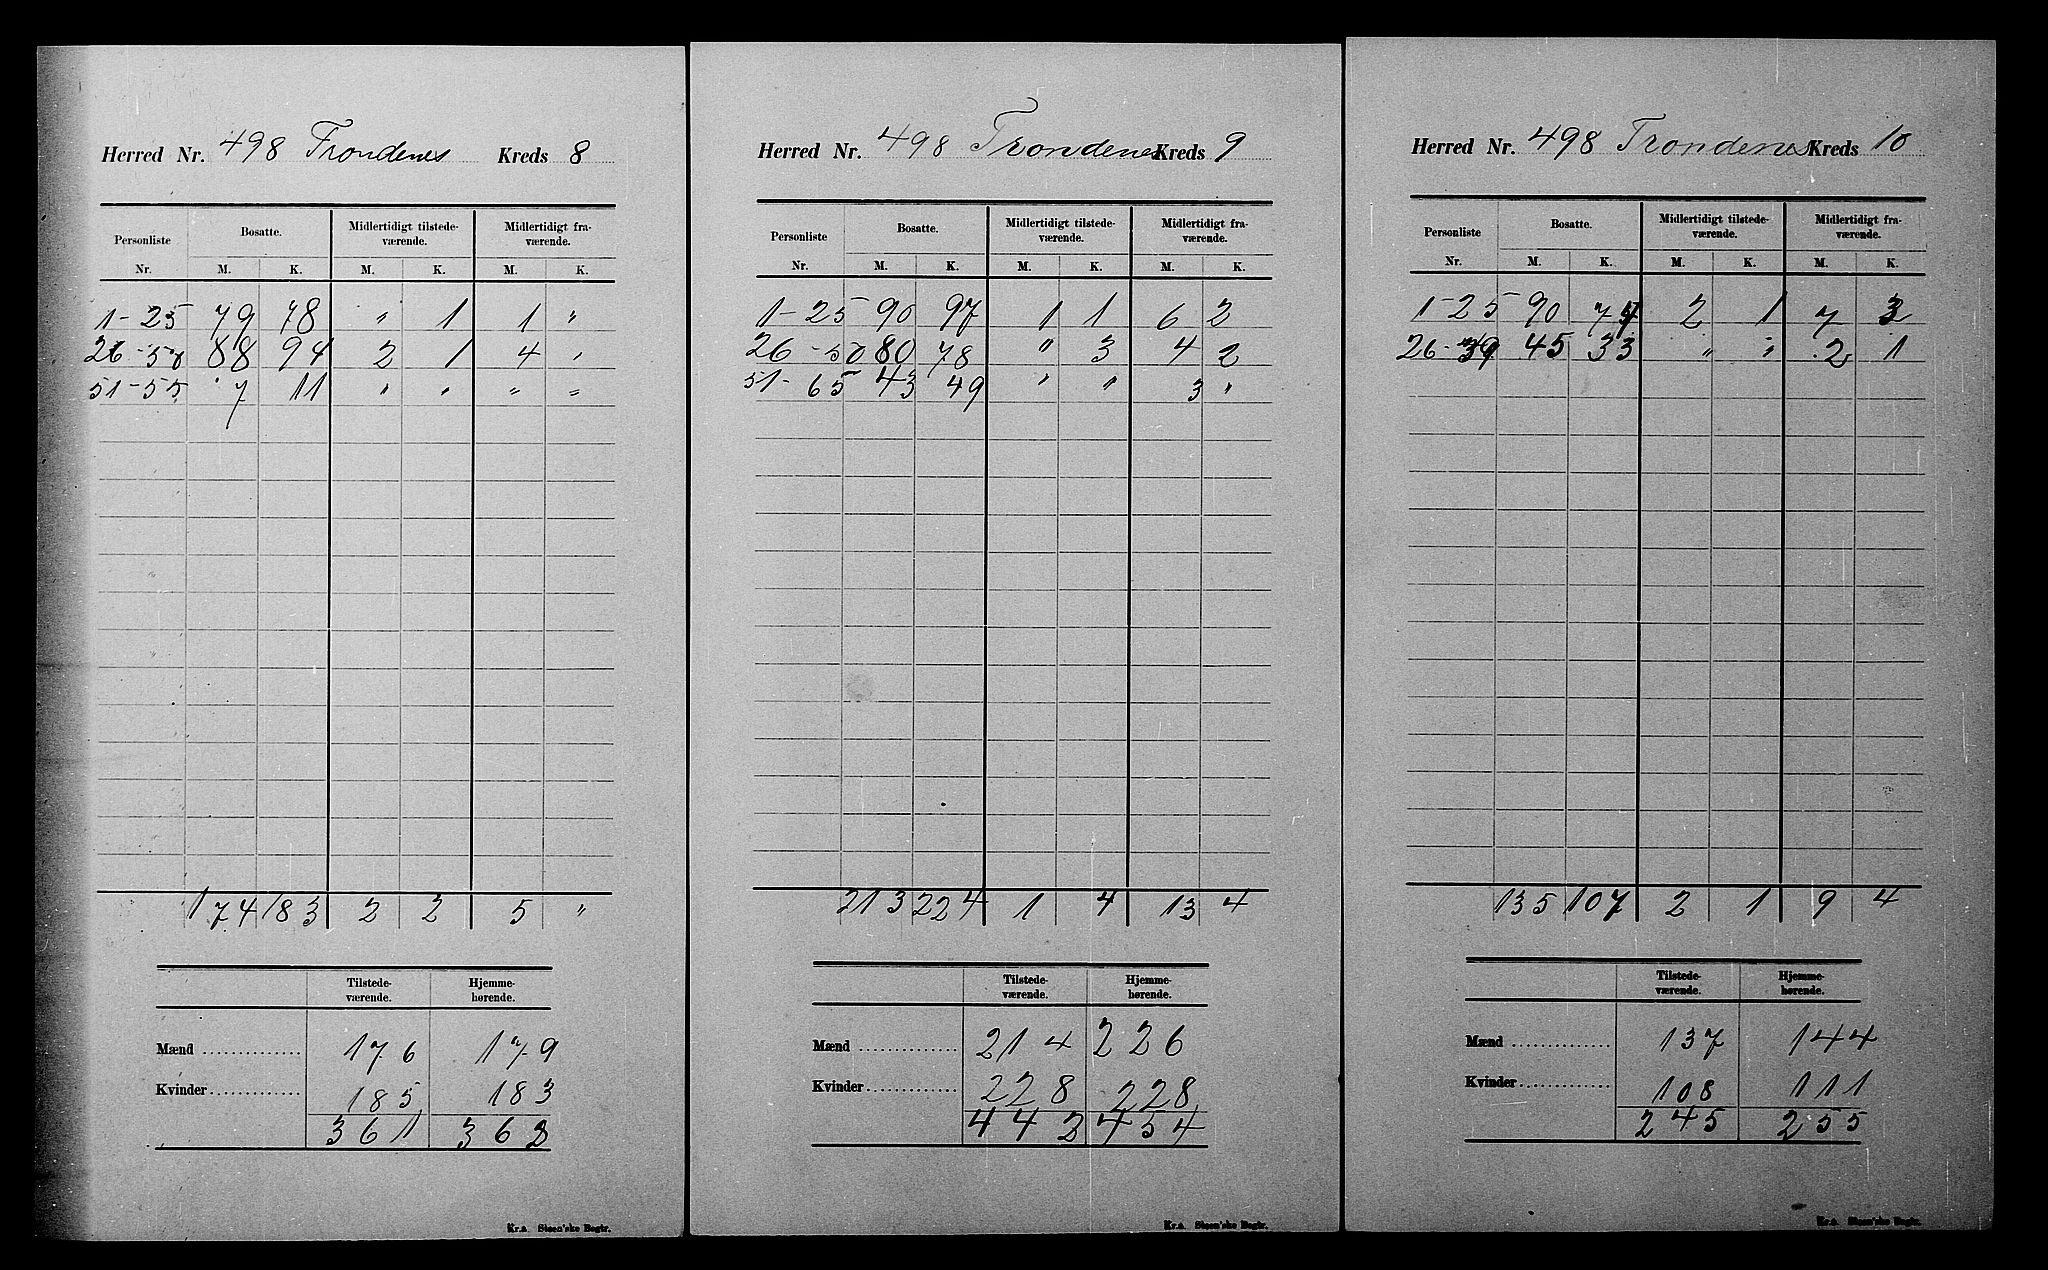 Herred Nr. 498 Trondenes Kreds 8
Personliste Bosatte. Midlertidigt tilstede- Midlertidigt fra-
værende. værende.
Nr. M. K. M. K. M. K.
1-25 79 78 " 1 1 "
26-50 88 94 2 1 4 "
51-55 7 11 " " " "
174 183 2 2 5 "
Tilstede- Hjemme-
værende. hørende.
Mænd 176 179
Kvinder 185 183
361 362
Kr.a Steen'ske Bogtr.
Herred Nr. 498 Trondenes Kreds 9
Personliste Bosatte. Midlertidigt tilstede- Midlertidigt fra-
værende. værende.
Nr. M. K. M. K. M. K.
1-25 90 97 1 1 6 2
26-50 80 78 " 3 4 2
51-65 43 49 " " 3 "
213 224 1 4 13 4
Tilstede- Hjemme-
værende. hørende.
Mænd 214 226
Kvinder 228 228
442 454
Kr.a Steen'ske Bogtr.
Herred Nr. 498 Trondenes Kreds 10
Personliste Bosatte. Midlertidigt tilstede- Midlertidigt fra-
værende. værende.
Nr. M. K. M. K. M. K.
1-25 90 74 2 1 7 3
26-39 45 33 " " 2 1
135 107 2 1 9 4
Tilstede- Hjemme-
værende. hørende.
Mænd 137 144
Kvinder 108 111
245 255
Kr.a Steen'ske Bogtr.